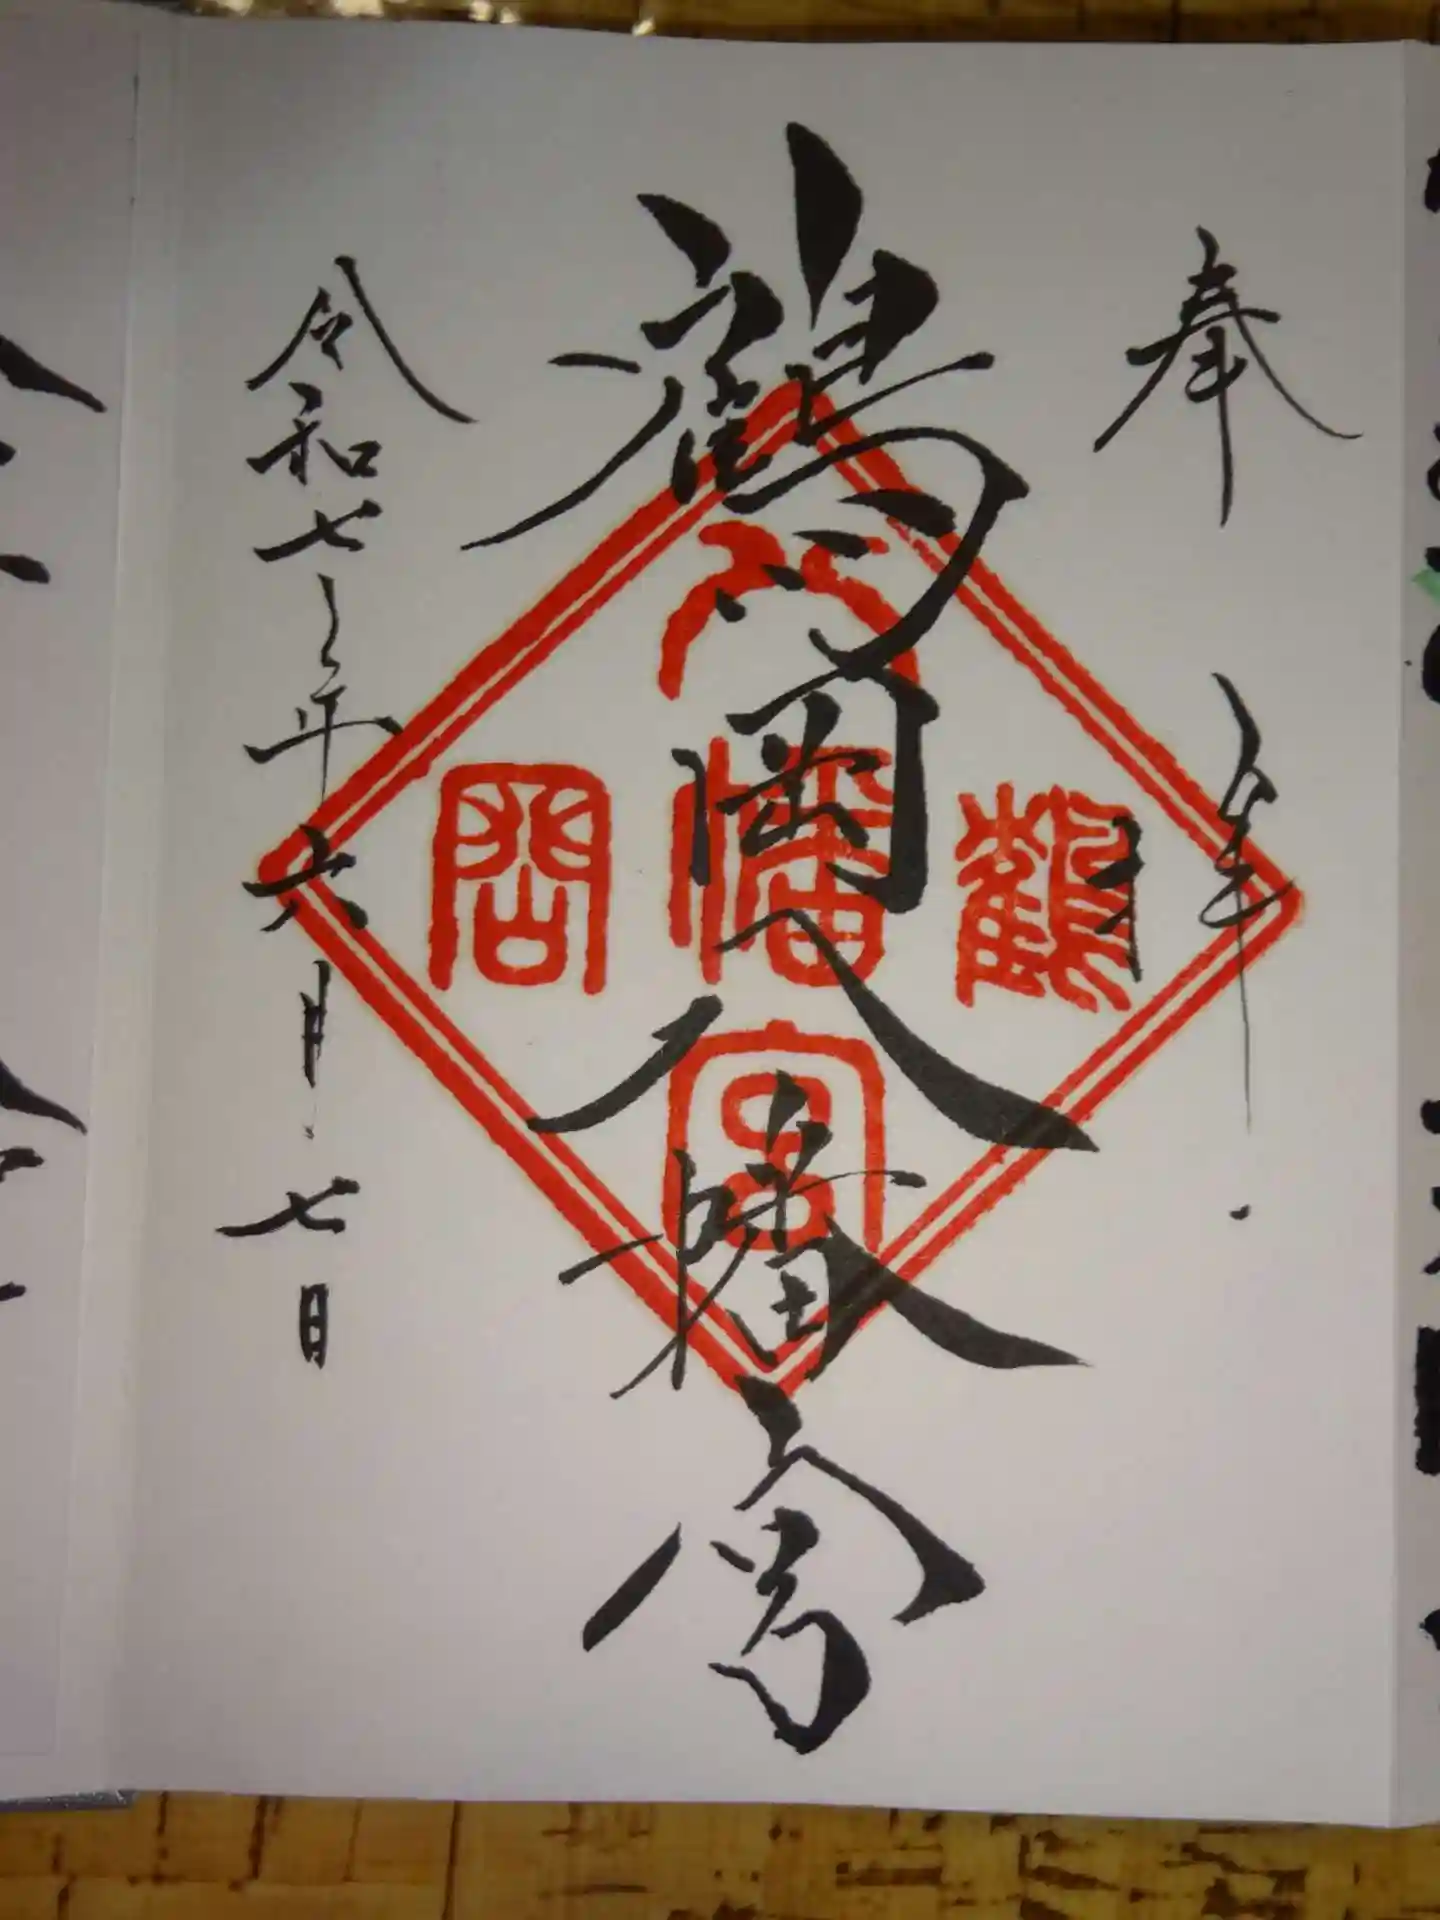 奉拝
鶴岡八幡宮
鶴
八
幡
宮
岡
令和七年六月七日